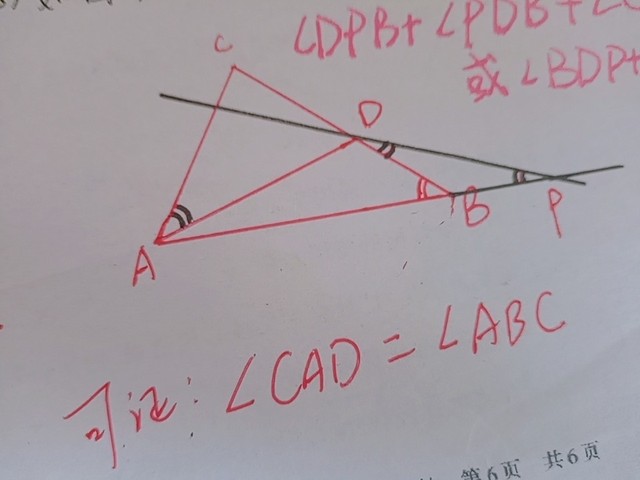 ∠DPB+∠PDB+∠
或∠BDP+
C
D
B
P
A
可证:∠CAD=∠ABC
第6页 共6页